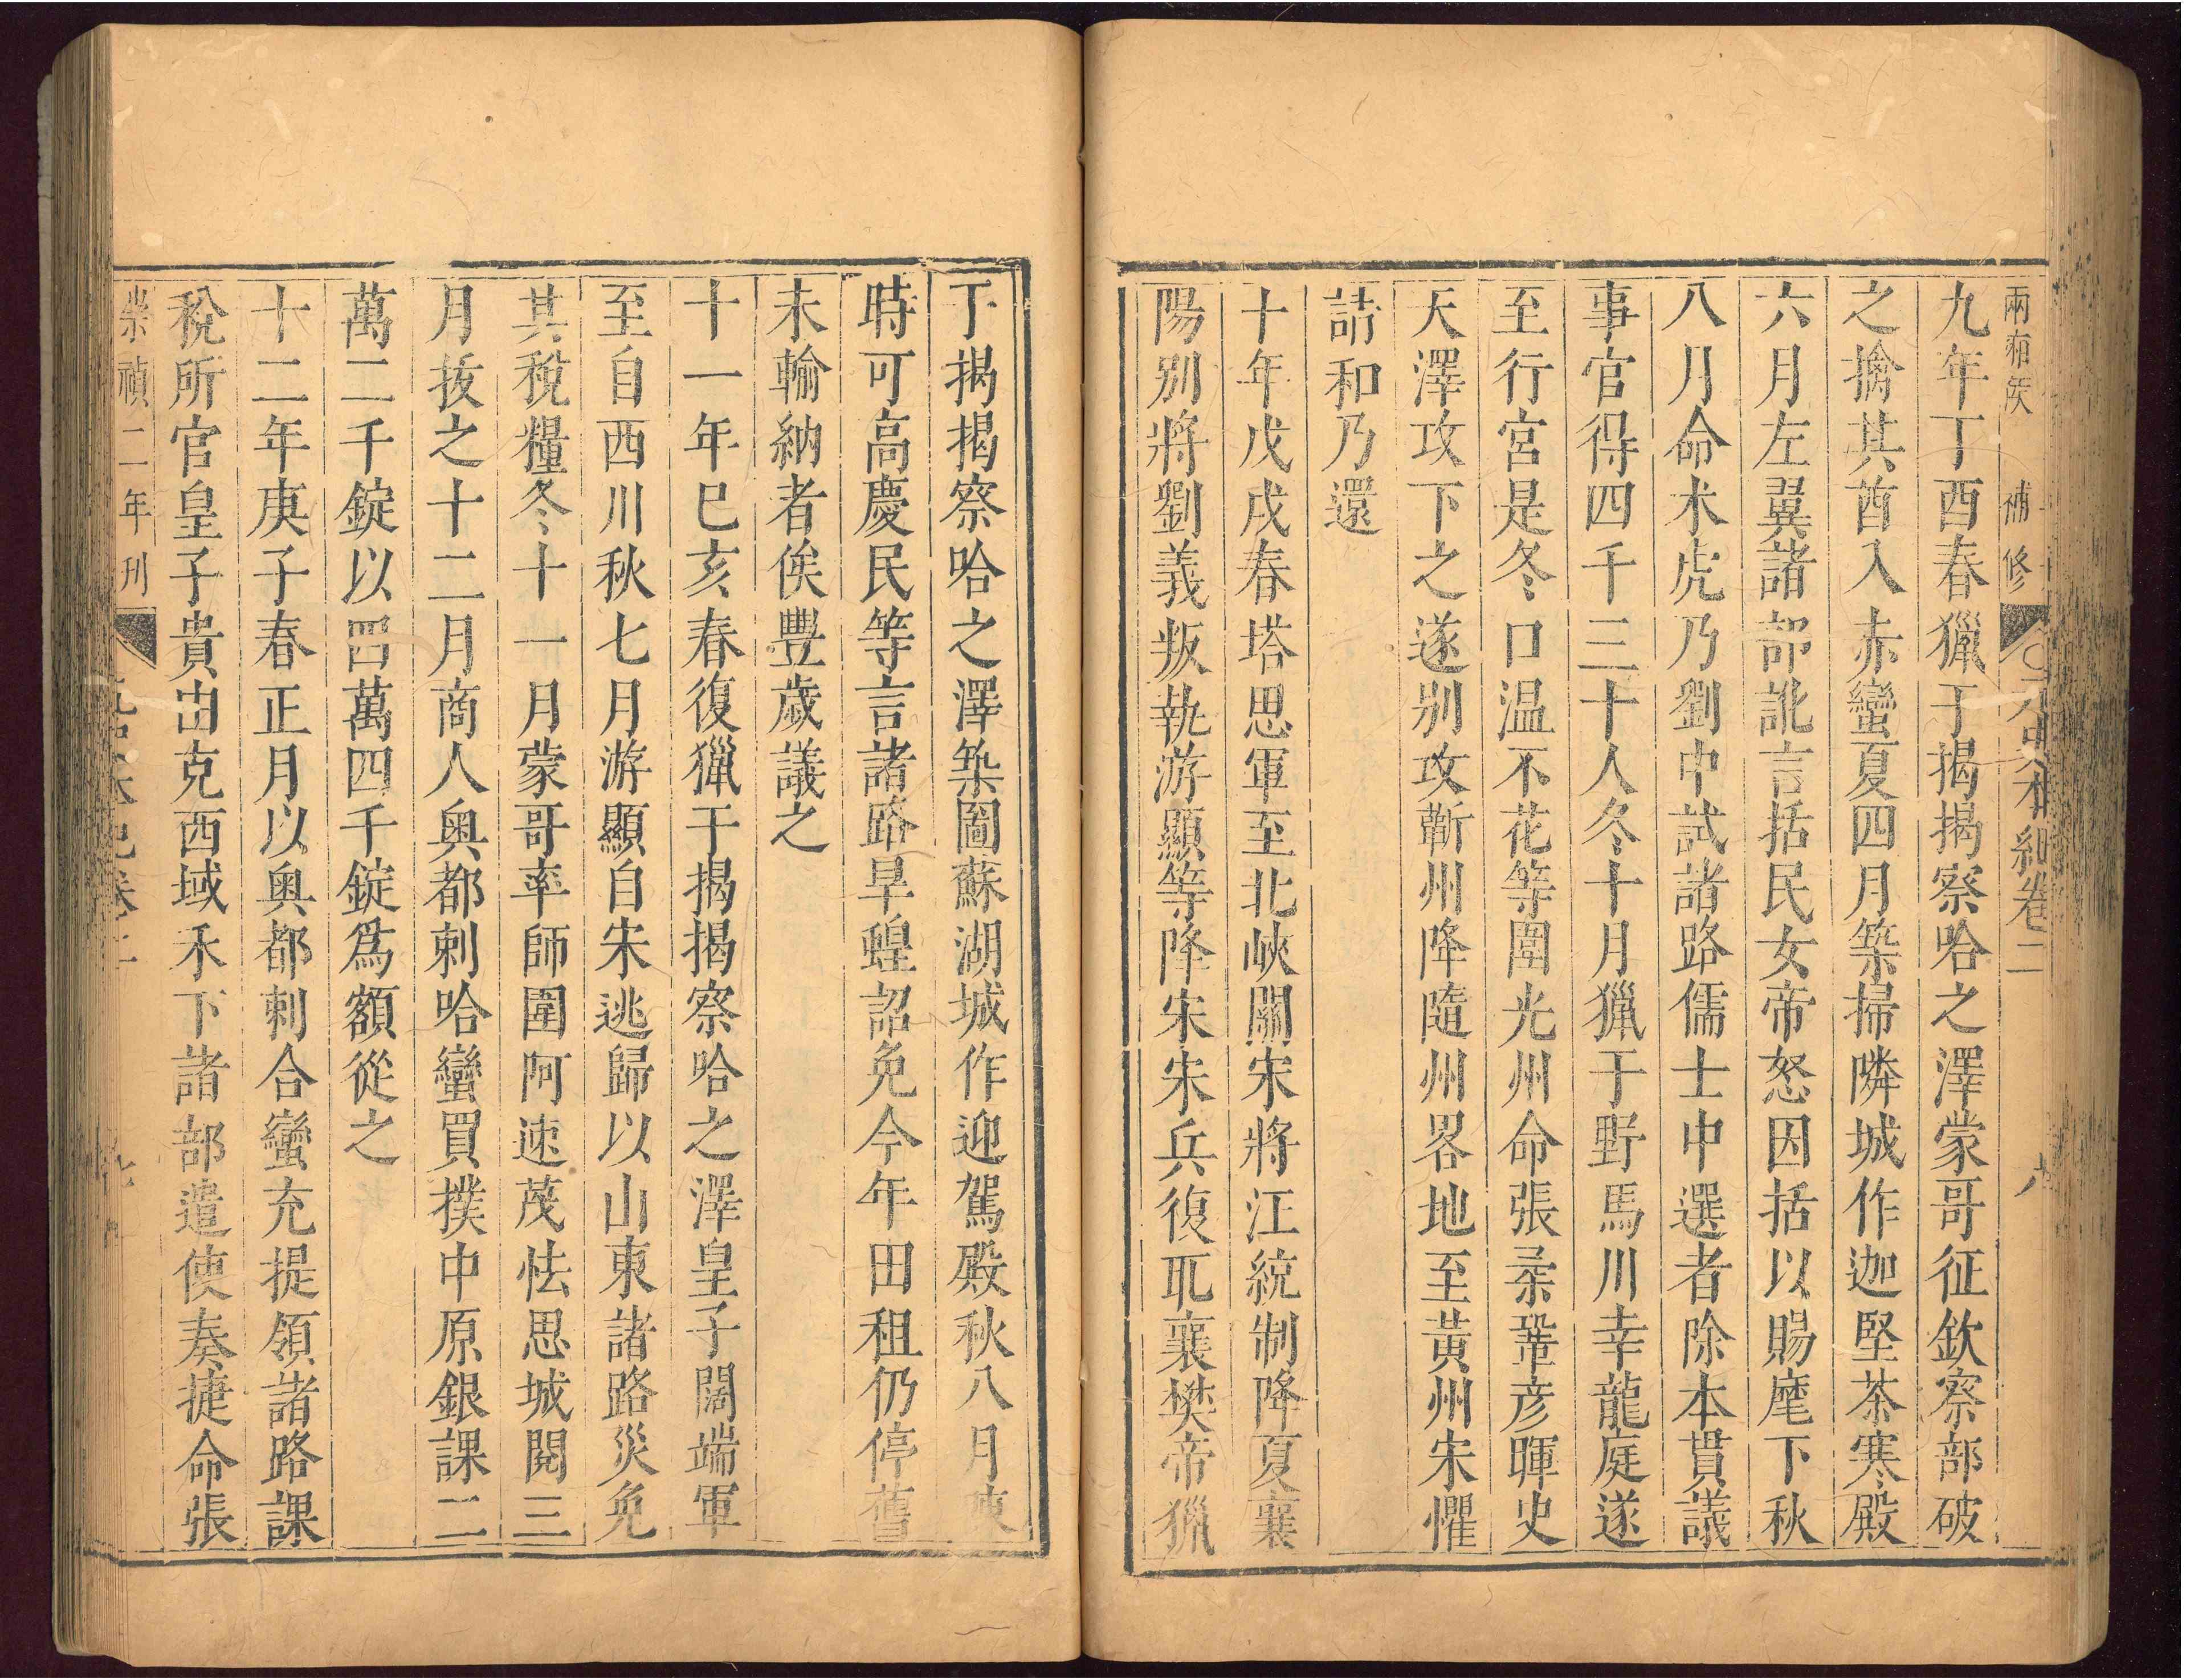 九年丁酉春獵于揭揭察哈之澤蒙哥征欽察部破
之擒其酋入赤蠻夏四月築掃隣城作迦堅茶寒殿
六月左翼諸部訛言括民女帝怒因括以賜麾下秋
八月命朮虎乃劉中試諸路儒士中選者除本貫議
事官得四千三十人冬十月獵于野馬川幸龍庭遂
至行宮是冬口温不花等圍光州命張柔鞏彦暉史
天澤攻下之遂别攻蘄州降隨州畧地至黃州宋懼
請和乃還
十年戊戌春塔思軍至北峽關宋將汪統制降夏襄
陽别將劉義叛執游顯等降宋宋兵復取襄樊帝獵
于揭揭察哈之澤築圖蘇湖城作迎駕殿秋八月陳
時可高慶民等言諸路旱蝗詔免今年田租仍停舊
未輸納者俟豐歲議之
十一年己亥春復獵于揭揭察哈之澤皇子闊端軍
至自西川秋七月游顯自宋逃歸以山東諸路災免
其稅糧冬十一月蒙哥率師圍阿速蔑怯思城閱三
月拔之十二月商人奥都剌哈蠻買撲中原銀課二
萬二千錠以四萬四千錠爲額從之
十二年庚子春正月以奥都剌合蠻充提領諸路課
稅所官皇子貴由克西域未下諸部遣使奏捷命張
崇禎二年刊